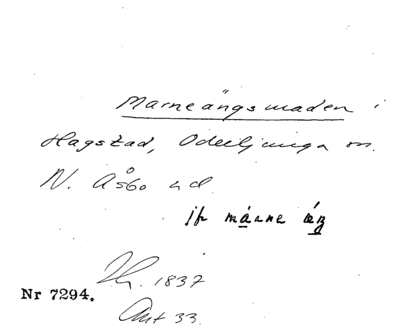 Marneängsmaden i
Hagstad, Oderljunga sn.
N. Åsbo hd.
jfr marne äng
Nr 7294.
1837
Ant 33.